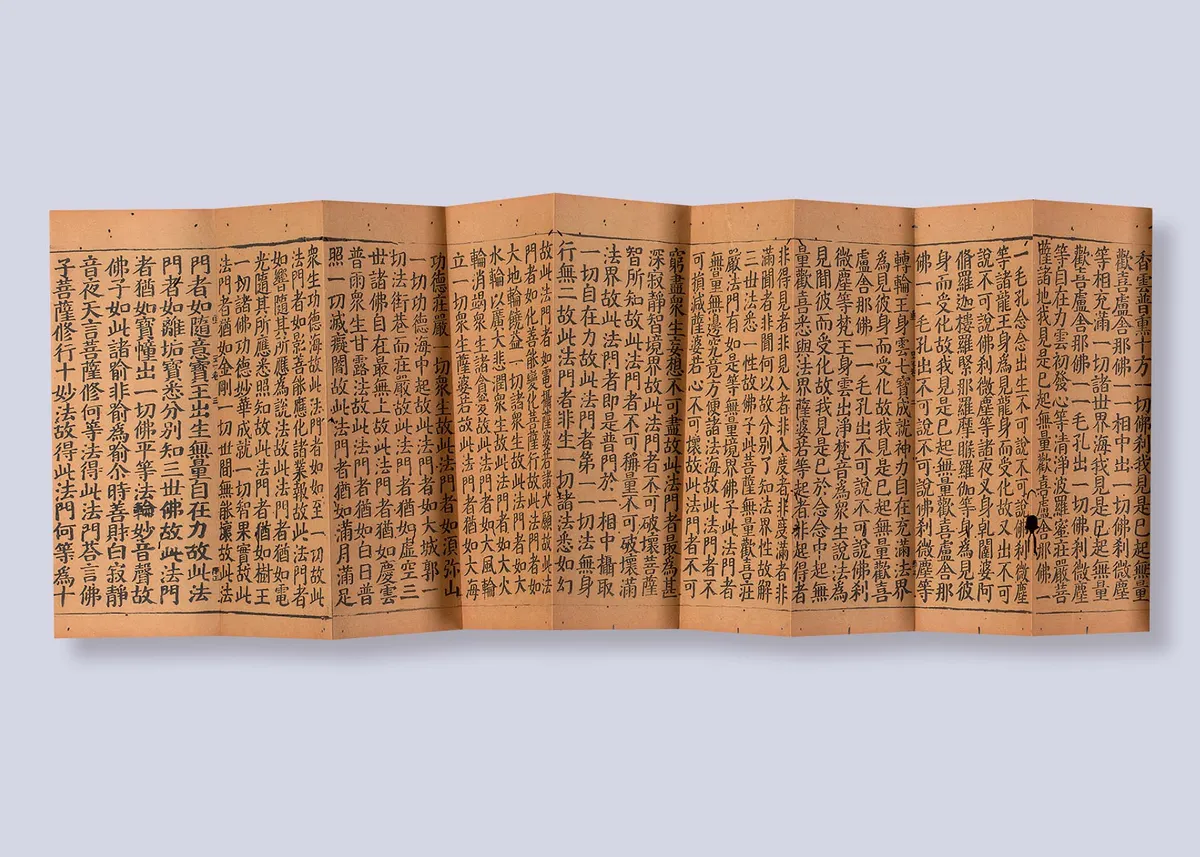 香雲普熏十方一切佛刹我見是已起無量
歡喜盧舍那佛一一相中出一切佛刹微塵
等相充滿一切諸世界海我見是已起無量
歡喜盧舍那佛一一毛孔出一切佛刹微塵
等自在力雲初發心等清淨波羅蜜莊嚴菩
薩諸地我見是已起無量歡喜盧舍那佛一
一毛孔念念出生不可說不可說佛刹微塵
等諸龍王身為見龍身而受化故又出不可
說不可說佛刹微塵等諸夜叉身乹闥婆阿
脩羅迦樓羅緊那羅摩睺羅伽等身為見彼
身而受化故我見是已起無量歡喜盧舍那
佛一一毛孔出不可說不可說佛刹微塵等
轉輪王身雲七寶成就神力自在充滿法界
為見彼身而受化故我見是已起無量歡喜
盧舍那佛一一毛孔出不可說不可說佛刹
微塵等梵王身雲出淨梵音為衆生說法為
見聞彼而受化故我見是已於念念中起無
量歡喜悉與法界薩婆若等起者非起得者
非得見者非見入者非入度者非度滿者非
滿聞者非聞何以故分別了知法界性故解
三世法悉一性故佛子此菩薩無量歡喜莊
嚴法門有如是等無量境界佛子此法門者
無量無邊究竟方便諸法海故此法門者不
可損減薩婆若心不可壞故此法門者不可
窮盡衆生妄想不可盡故此法門者最為甚
深寂靜智者境界故此法門者不可破壞菩薩
智所知故此法門者不可稱量不可破壞滿
法界故此法門者即是普門於一相中攝取
一切自在力故此法門者第一一切法無身
行無二故此法門者非生一切諸法悉如幻
故此法門者如電攝薩婆若諸大願故此法
門者如化善能變化菩薩行故此法門者如
大地輪饒益一切諸衆生故此法門者如大
水輪以廣大悲潤衆生故此法門者如大火
輪消渴衆生諸貪愛故此法門者如大風輪
立一切衆生薩婆若故此法門者如大海
功德莊嚴一切衆生故此法門者如須弥山
一切功德海中起故此法門者如大城郭一
切法街巷而莊嚴故此法門者猶如虛空三
世諸佛自在最無上故此法門者猶如慶雲
普雨衆生甘露法故此法門者猶如白日普
照一切滅癡闇故此法門者猶如滿月滿足
衆生功德海故此法門者如如至一切故此
法門者如影善能應化諸業報故此法門者
如響隨其所應為說法故此法門者猶如電
光隨其所應悉照知故此法門者猶如樹王
一切諸佛功德妙華成就一切智果實故此
法門者猶如金剛一切世間無能壞故此法
門者如隨意寶王出生無量自在力故此法
門者如離垢寶悉分別知三世佛故此法門
者猶如寶幢出一切佛平等法輪妙音聲故
佛子如此諸喻非喻為喻尒時善財白寂靜
音夜天言菩薩修何等法得此法門荅言佛
子菩薩修行十妙法故得此法門何等為十